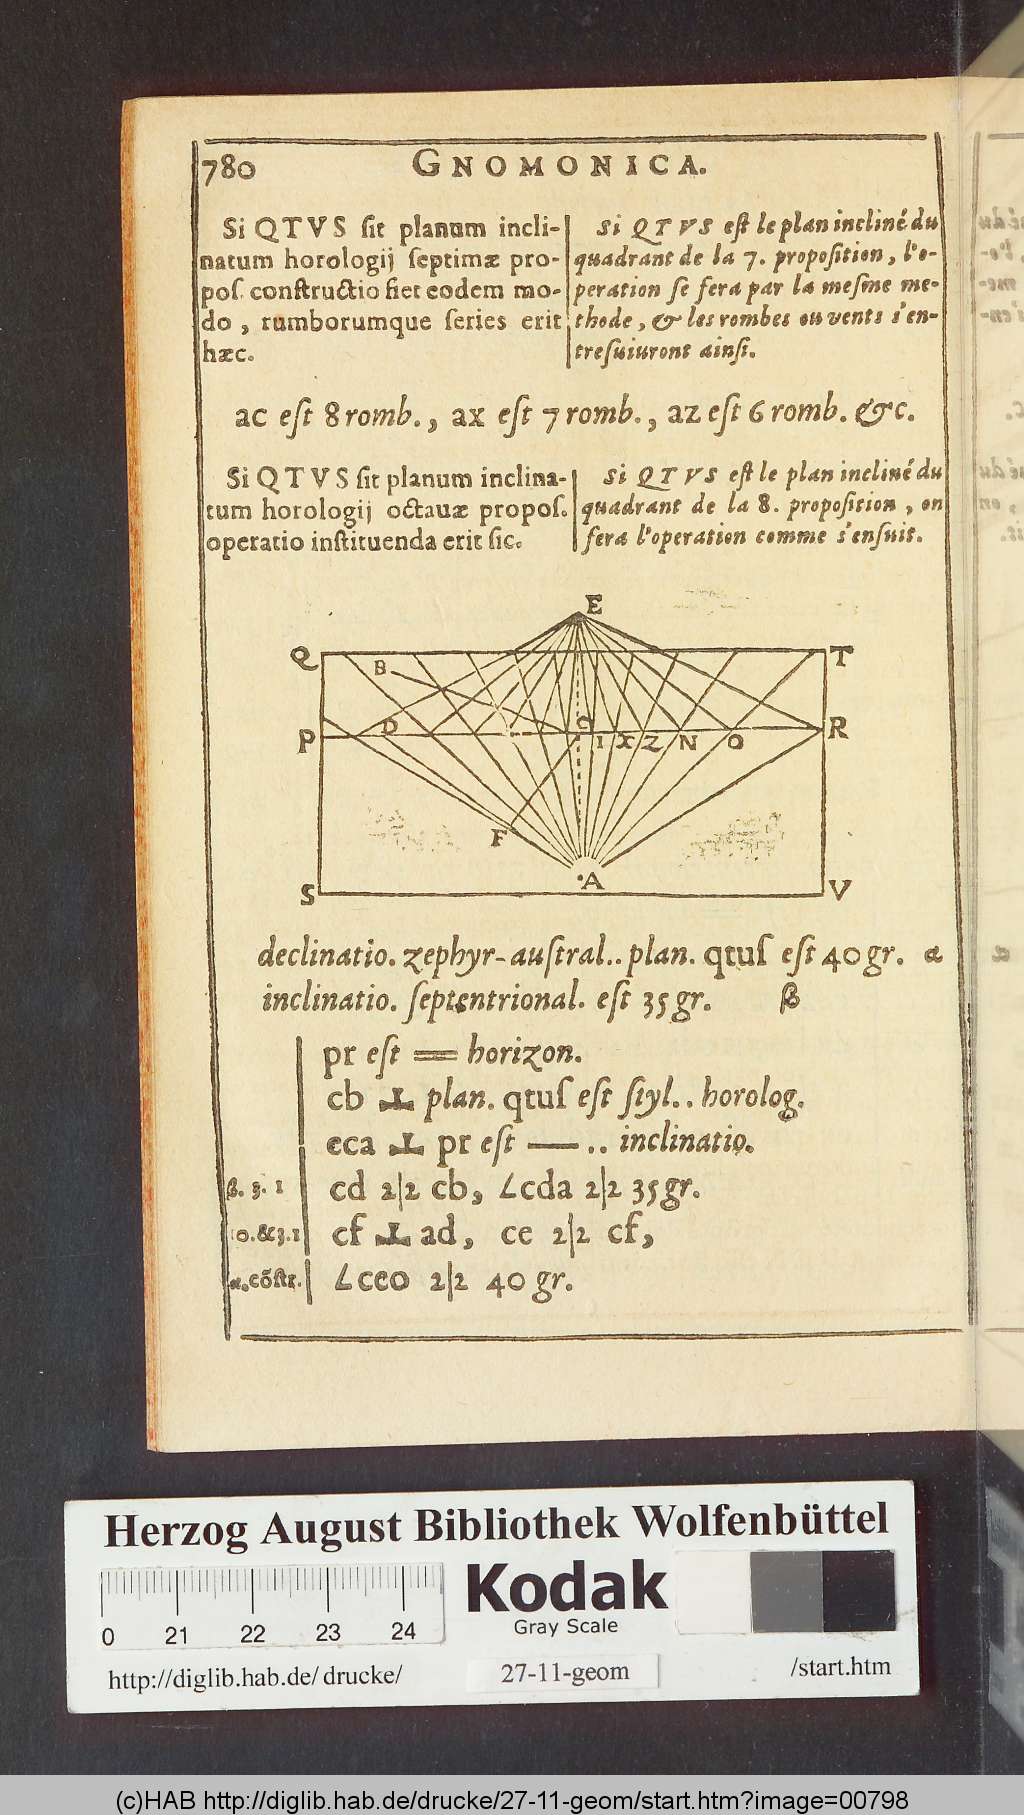 780 GNOMONICA.
Si QTVS sit planum incli-
natum horologij septimæ pro-
pos. constructio fiet eodem mo-
do, rumborumque series erit
hæc.
Si QTVS est le plan incliné du
quadrant de la 7. proposition, l'o-
peration se fera par la mesme me-
thode, & les rombes ou vents s'en-
tresuiuront ainsi.
ac est 8 romb., ax est 7 romb., az est 6 romb. &c.
Si QTVS sit planum inclina-
tum horologij octauæ propos.
operatio instituenda erit sic.
Si QTVS est le plan incliné du
quadrant de la 8. proposition, on
fera l'operation comme s'ensuit.
E
Q B T
P D C I X Z N O R
F
S A V
declinatio. zephyr-austral.. plan. qtus est 40 gr. α
inclinatio. septentrional. est 35 gr. β
pr est == horizon.
cb ⊥ plan. qtus est styl.. horolog.
eca ⊥ pr est — .. inclinatio.
β. 3. 1 cd 2|2 cb, ∠cda 2|2 35 gr.
10.&3.1 cf ⊥ ad, ce 2|2 cf,
α.cõstr. ∠ceo 2|2 40 gr.
Herzog August Bibliothek Wolfenbüttel
0 21 22 23 24
Kodak
Gray Scale
http://diglib.hab.de/drucke/ 27-11-geom /start.htm
(c)HAB http://diglib.hab.de/drucke/27-11-geom/start.htm?image=00798